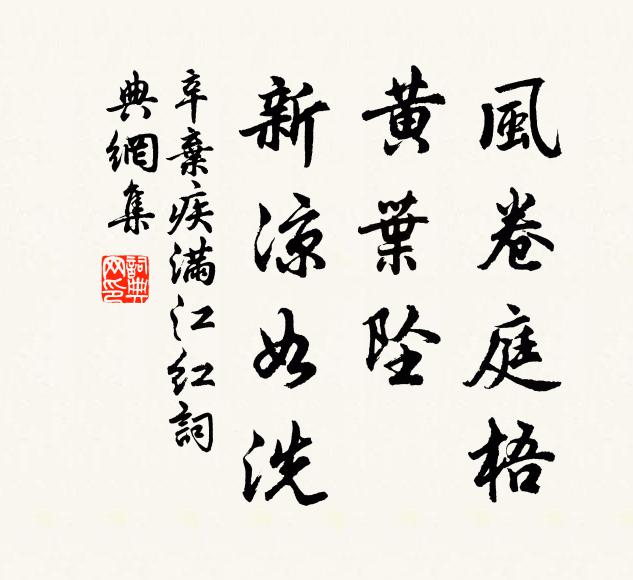 風卷庭梧
黄葉墜
新涼如洗
辛棄疾滿江紅詞
典網集
詞典網印